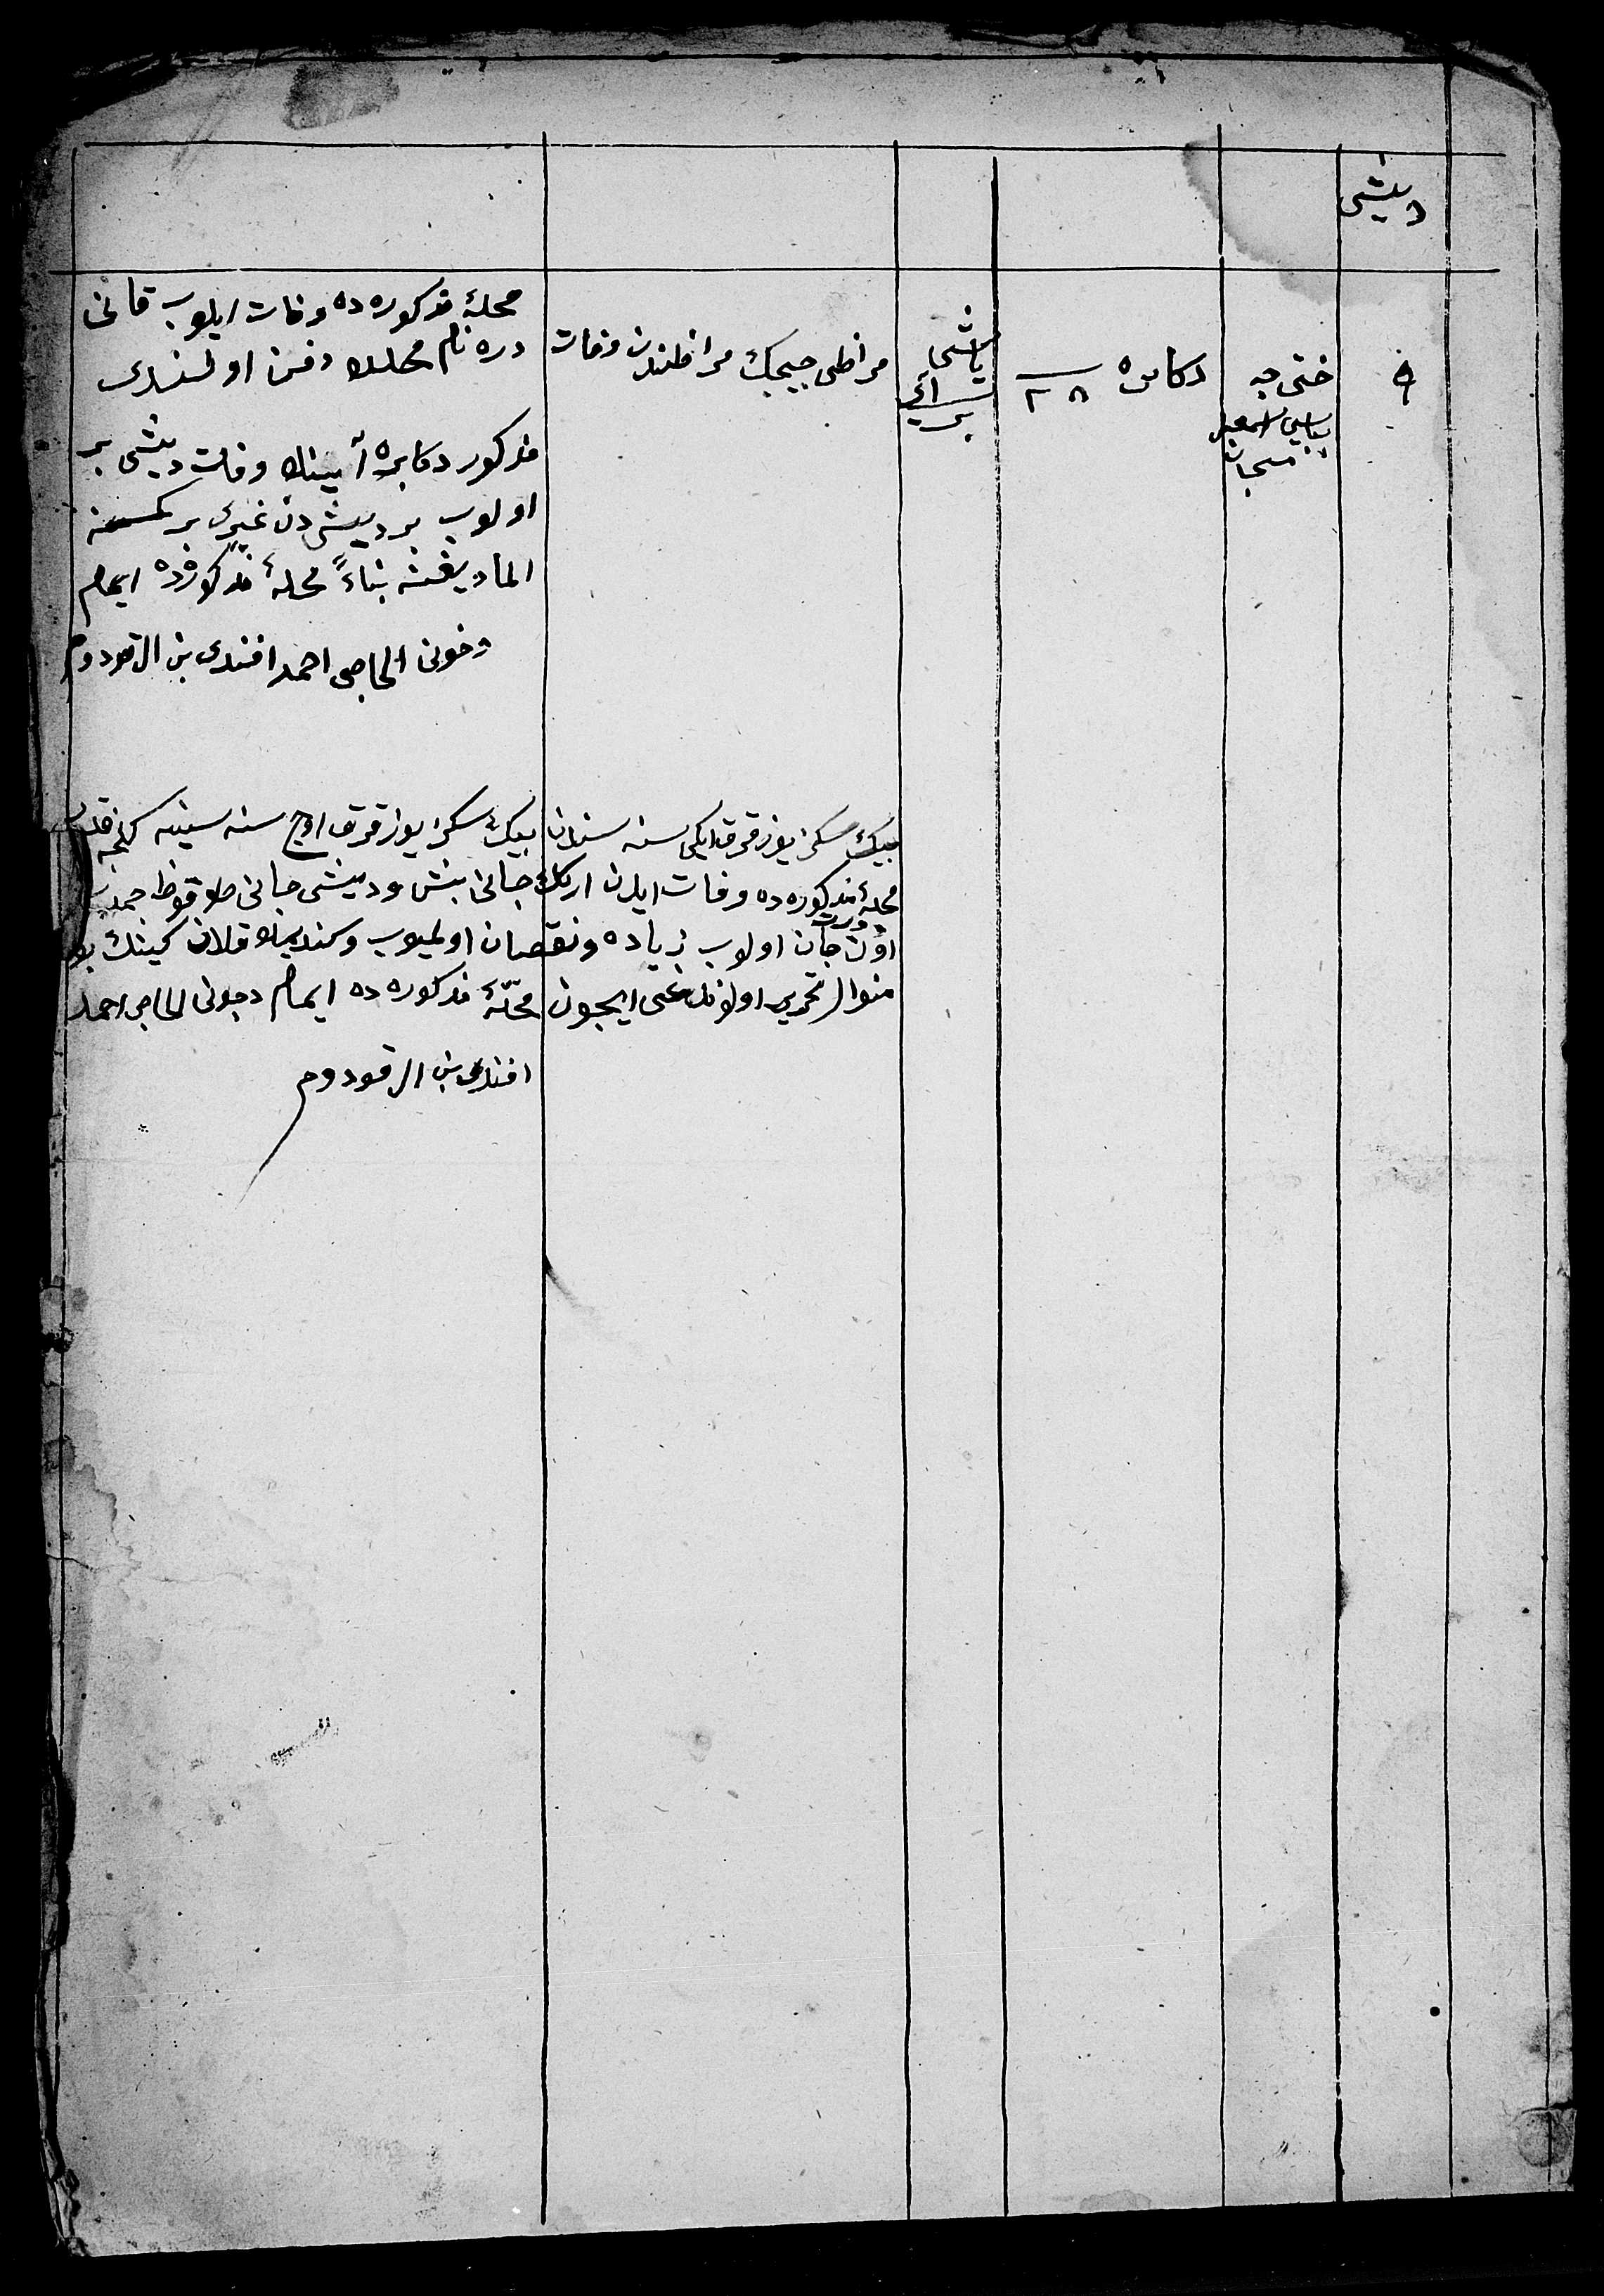 دیشی
٩
ختی جه
بباسی اسمعیل
دکابره ٢٨
یاشی
آی
بر
مراظی چیچك مراظندن وفات
محلهٔ مذكوره ده وفات ایلوب قانی
دره نام محلده دفن اولنـدی
مذكور دكابره آیینك وفات دیشی بر
اولوب بر دیشی دن غیری بر كسـنه
المادیغنه بناءً محلهٔ مذكوره ده ایمام
دخونی الحاجی احمد افندی بن القودوم
بیك سكز یوز قرق ایكی سنه سندن بیك سكز یوز قرق اوچ سنه سینه كلنجه قدر
محلهٔ مذكوره ده وفات ایدن اركك جانی بش و دیشی جانی طوقوظ جمله
اون درت جان اولوب زیاده ونقصان اولمیوب وكندیله قلان كینك بو
منوال تحریر اولاندیغی ایچون محلهٔ مذكوره ده ایمام دخونی الحاجی احمد
افندی بن القودوم